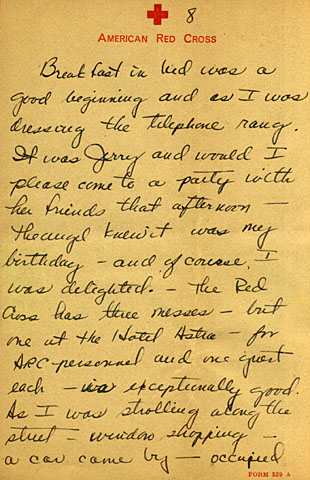 8
AMERICAN RED CROSS
Breakfast in bed was a
good beginning and as I was
dressing the telephone rang.
It was Jerry and would I
please come to a party with
her friends that afternoon —
knew it was my
birthday - and of course, I
was delighted. - The Red
Cross has three messes - but
one at the Hotel Astra - for
ARC personnel and one guest
each - is exceptionally good.
As I was strolling along the
street - window shopping -
a car came by - occupied
FORM 539 A